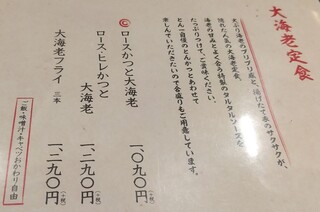 大海老定食
大ぶり海老のプリプリ感と、揚げたて衣のサクサクが、
隠れた人気の大海老定食。
海老の甘みとよく合う特製のタルタルソースを
たっぷりつけて、ご賞味ください。
とん一自慢のとんかつとあわせて
楽しんでいただきたいので合盛りもご用意しています。
ロースかつと大海老 一、〇九〇円(+税)
ロース・ヒレかつと
大海老 一、二九〇円(+税)
大海老フライ 三本 一、二九〇円(+税)
ご飯・味噌汁・キャベツおかわり自由